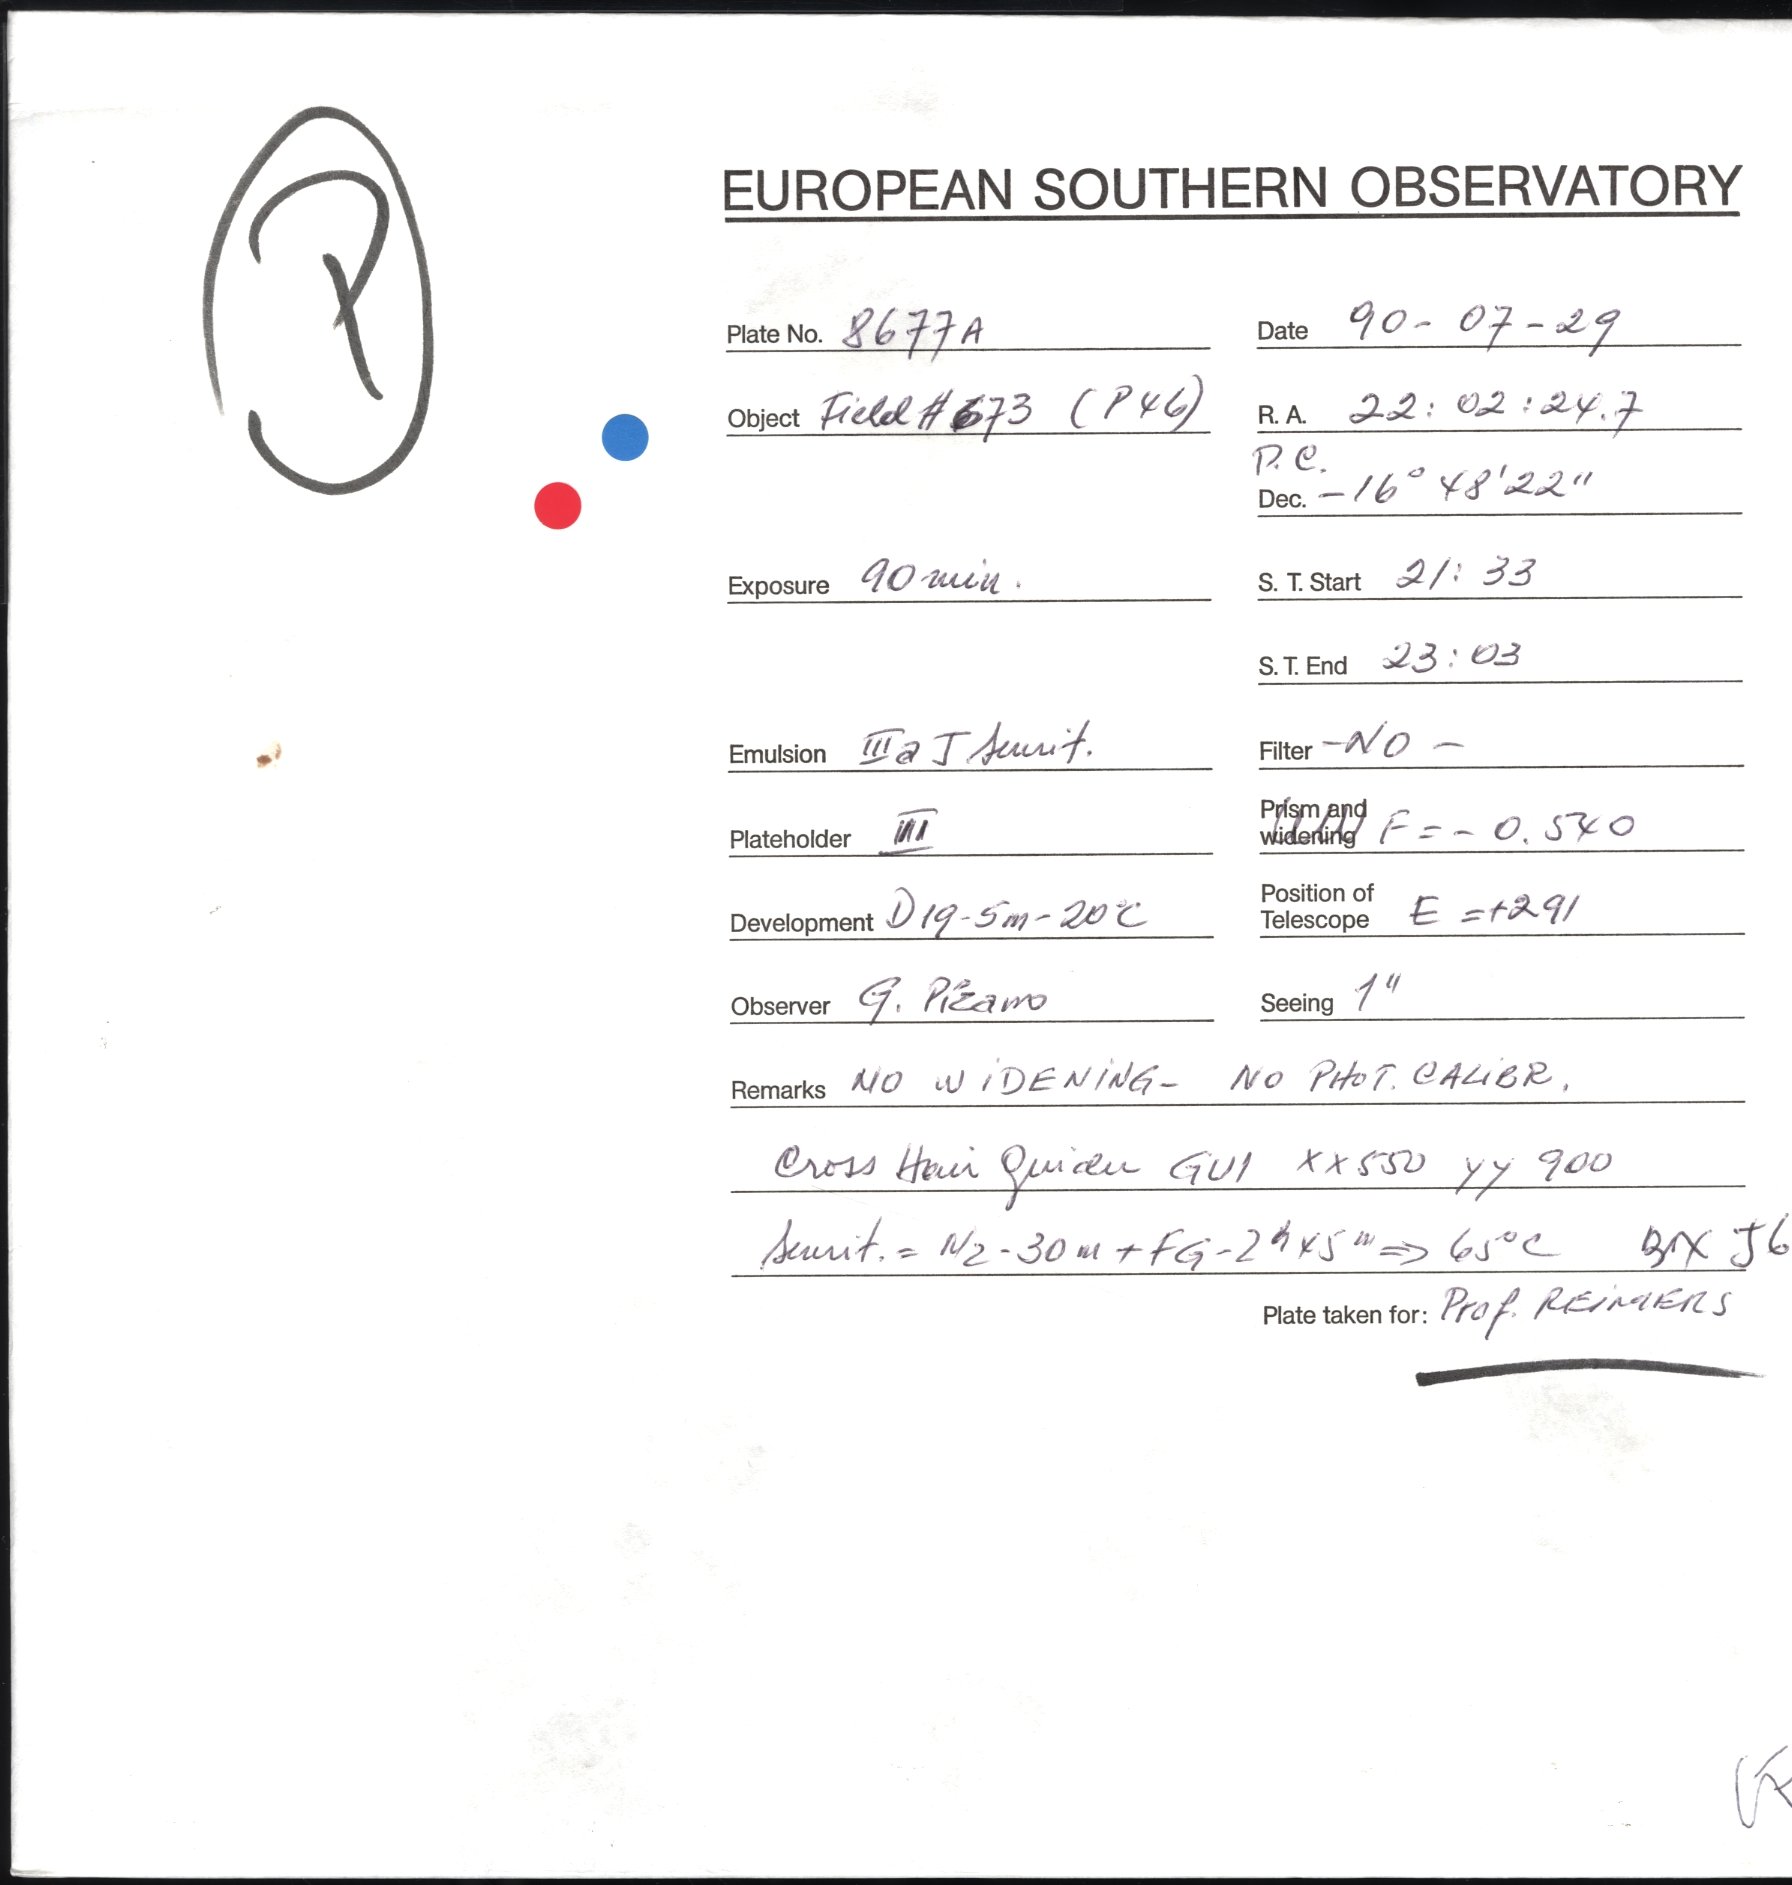 P
EUROPEAN SOUTHERN OBSERVATORY
Plate No. 8677A Date 90-07-29
Object Field # 673 (P46) R. A. 22:02:24.7
P.C.
Dec. -16° 48'22"
Exposure 90 min. S. T. Start 21:33
S. T. End 23:03
Emulsion IIIaJ Sensit. Filter -NO-
Plateholder III Prism and widening F = -0.540
Development D19-5m-20°C Position of Telescope E =+291
Observer G. Pizarro Seeing 1"
Remarks NO WIDENING- NO PHOT. CALIBR.
Cross Hair Guider GUI XX550 YY 900
Sensit. = N2-30m + FG-2h45m => 65°C J6
Plate taken for: Prof. REIMERS